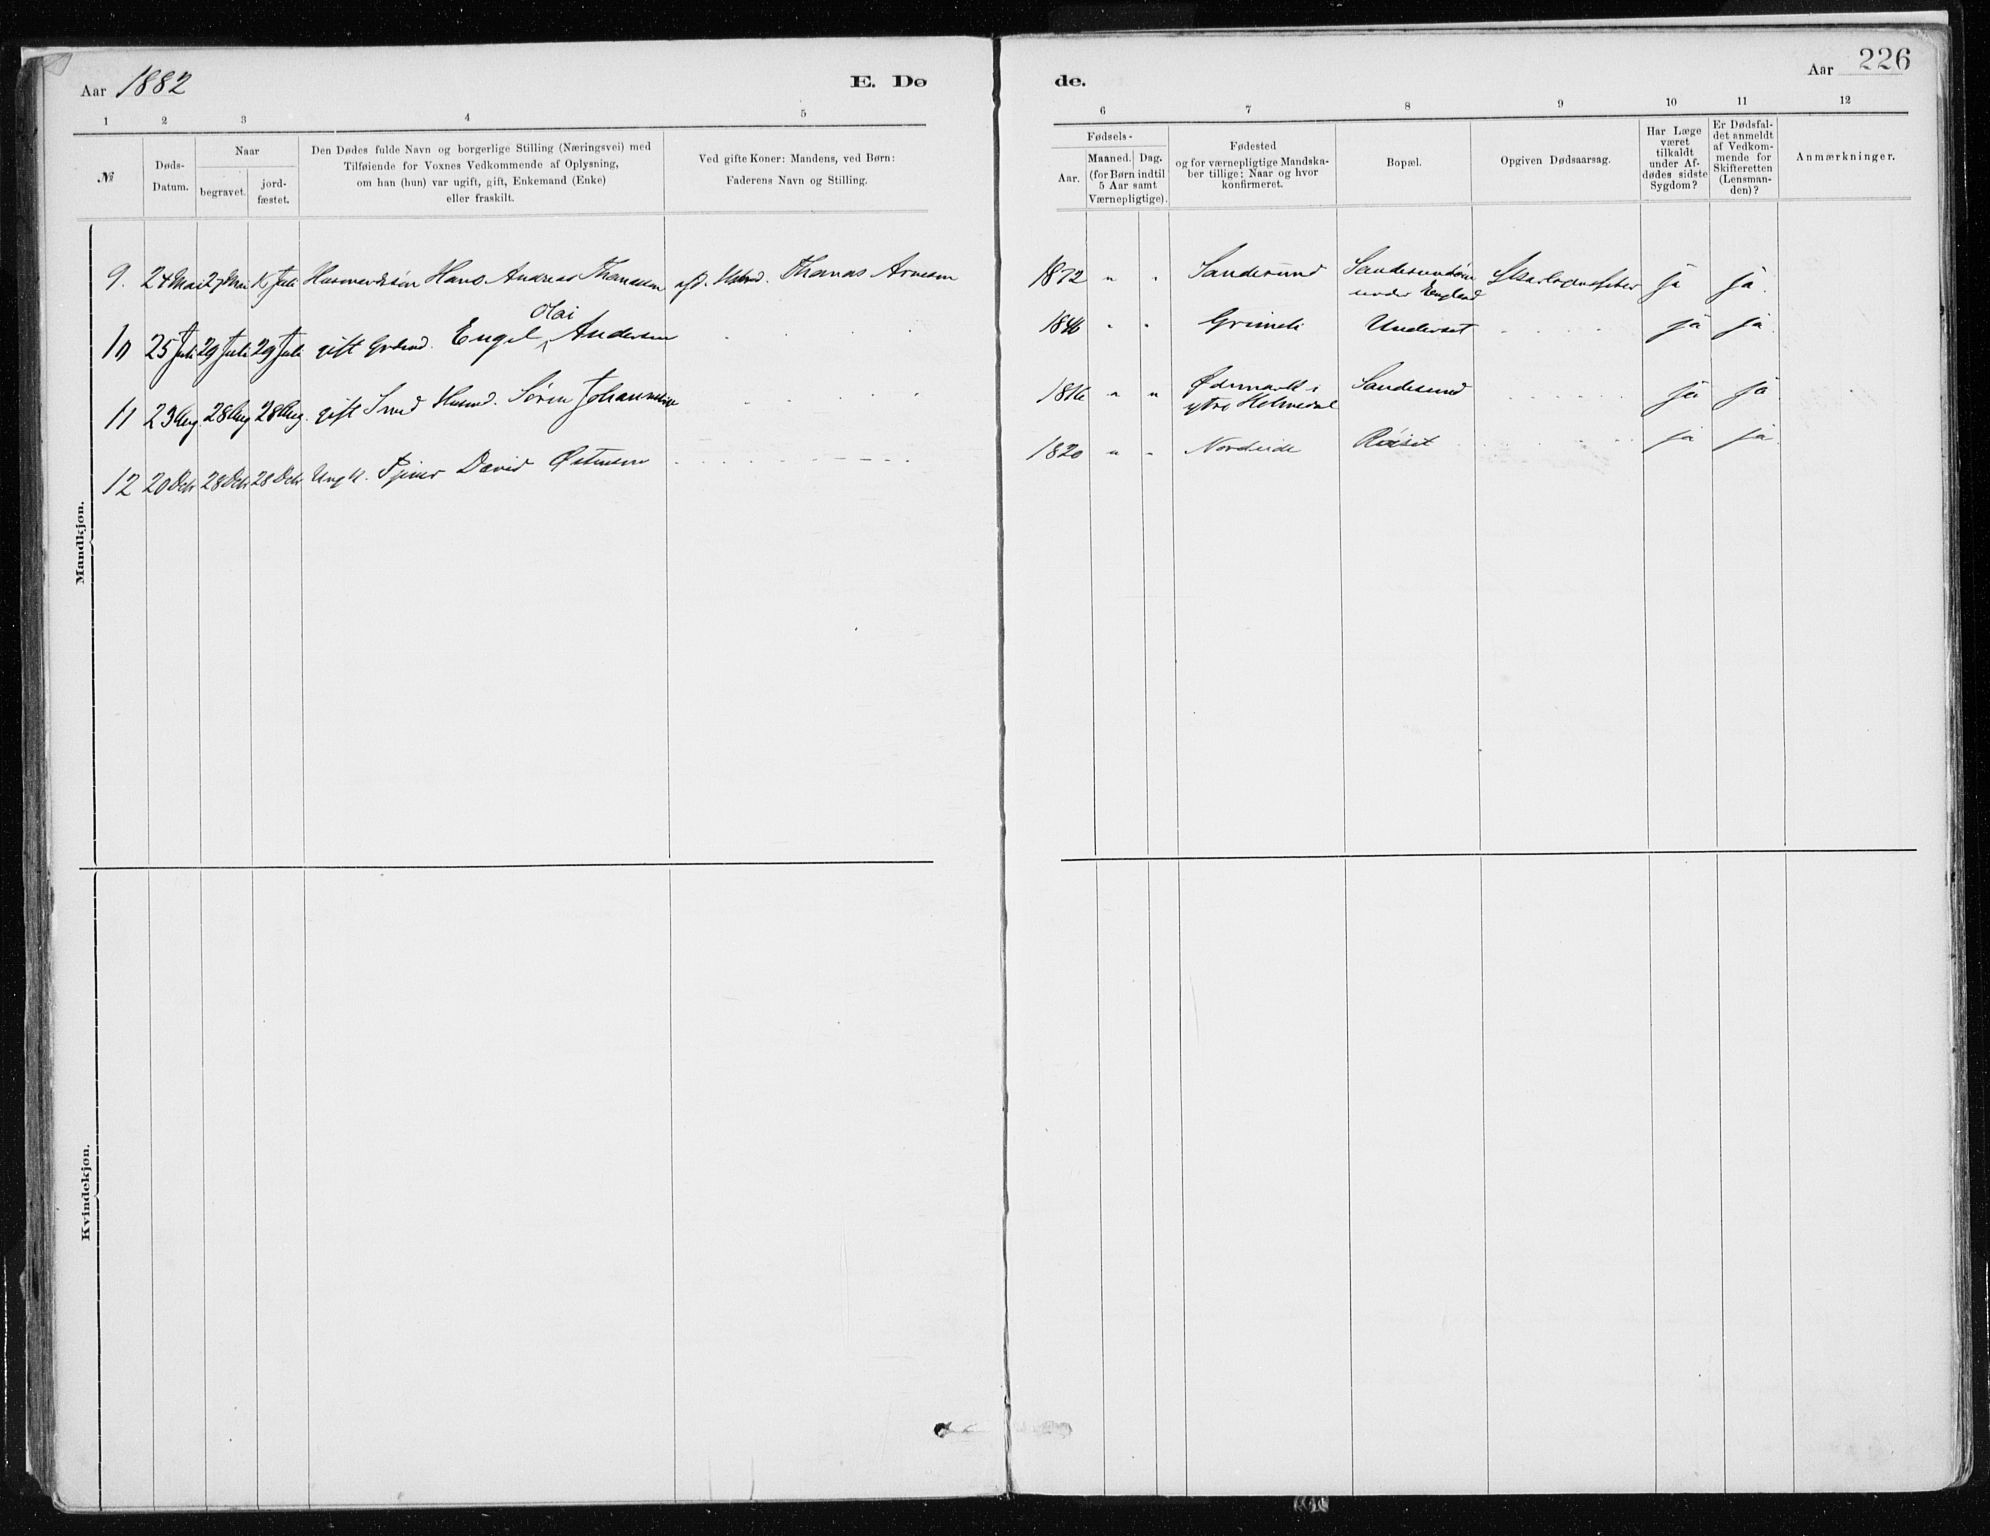 Aar 1882 E. Dø
de. Aar 226
1 2 3 4 5
6 7 8 9 10 11 12
№
Døds-
Datum.
Naar
begravet.
jord-
fæstet.
Den Dødes fulde Navn og borgerlige Stilling (Næringsvei) med
Tilføiende for Voxnes Vedkommende af Oplysning,
om han (hun) var ugift, gift, Enkemand (Enke)
eller fraskilt.
Ved gifte Koner: Mandens, ved Børn:
Faderens Navn og Stilling.
Fødsels-
Aar.
Maaned. Dag.
(for Børn indtil
5 Aar samt
Værnepligtige).
Fødested
og for værnepligtige Mandska-
ber tillige: Naar og hvor
konfirmeret.
Bopæl.
Opgiven Dødsaarsag.
Har Læge
været
tilkaldt
under Af-
dødes sidste
Sygdom?
Er Dødsfal-
det anmeldt
af Vedkom-
mende for
Skifteretten
(Lensman-
den)?
Anmærkninger.
Mandkjøn.
9. 24 Mai 27 Juli Hans Andreas Thomassen Thomas Arnesen 1872 " " Sandesund under Skarlagensfeber ja ja.
Olai
10 25 Juli 29 Juli 29 Juli gift Engel Andersen 1846 " " Grimeli Underset ja ja.
11 23 Aug. 28 Aug 28 Aug. gift Smed Husmd. Søren Johannesen 1816 " " Ødemark i Sandesund ja ja
ytre Holmedal
12 20 Dcbr 28 Dcbr 28 Dcbr Ungk. David Østensen 1820 " " Nordeide ja ja
Kvindekjøn.